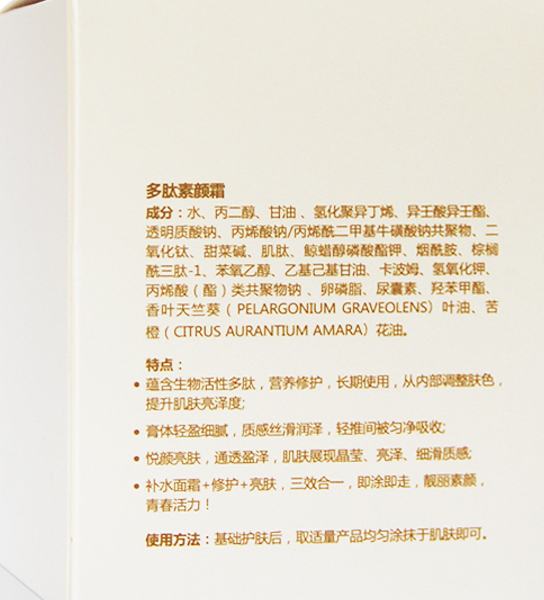 多肽素颜霜
成分：水、丙二醇、甘油 、氢化聚异丁烯、异壬酸异壬酯、
透明质酸钠、丙烯酸钠/丙烯酰二甲基牛磺酸钠共聚物、二
氧化钛、甜菜碱、肌肽、鲸蜡醇磷酸酯钾、烟酰胺、棕榈
酰三肽-1、苯氧乙醇、乙基己基甘油、卡波姆、氢氧化钾、
丙烯酸（酯）类共聚物钠 、卵磷脂、尿囊素、羟苯甲酯、
香叶天竺葵（ PELARGONIUM GRAVEOLENS）叶油、苦
橙（CITRUS AURANTIUM AMARA）花油。
特点：
• 蕴含生物活性多肽，营养修护，长期使用，从内部调整肤色，
提升肌肤亮泽度;
• 膏体轻盈细腻，质感丝滑润泽，轻推间被匀净吸收;
• 悦颜亮肤，通透盈泽，肌肤展现晶莹、亮泽、细滑质感;
• 补水面霜+修护+亮肤，三效合一，即涂即走，靓丽素颜，
青春活力！
使用方法：基础护肤后，取适量产品均匀涂抹于肌肤即可。